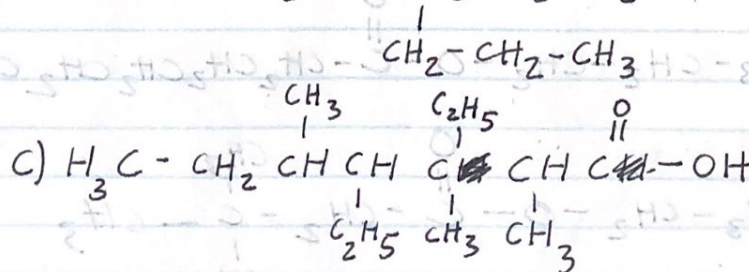 CH2-CH2-CH3
CH3 C2H5 O
C) H3C - CH2 CH CH C CH C - OH
C2H5 CH3 CH3